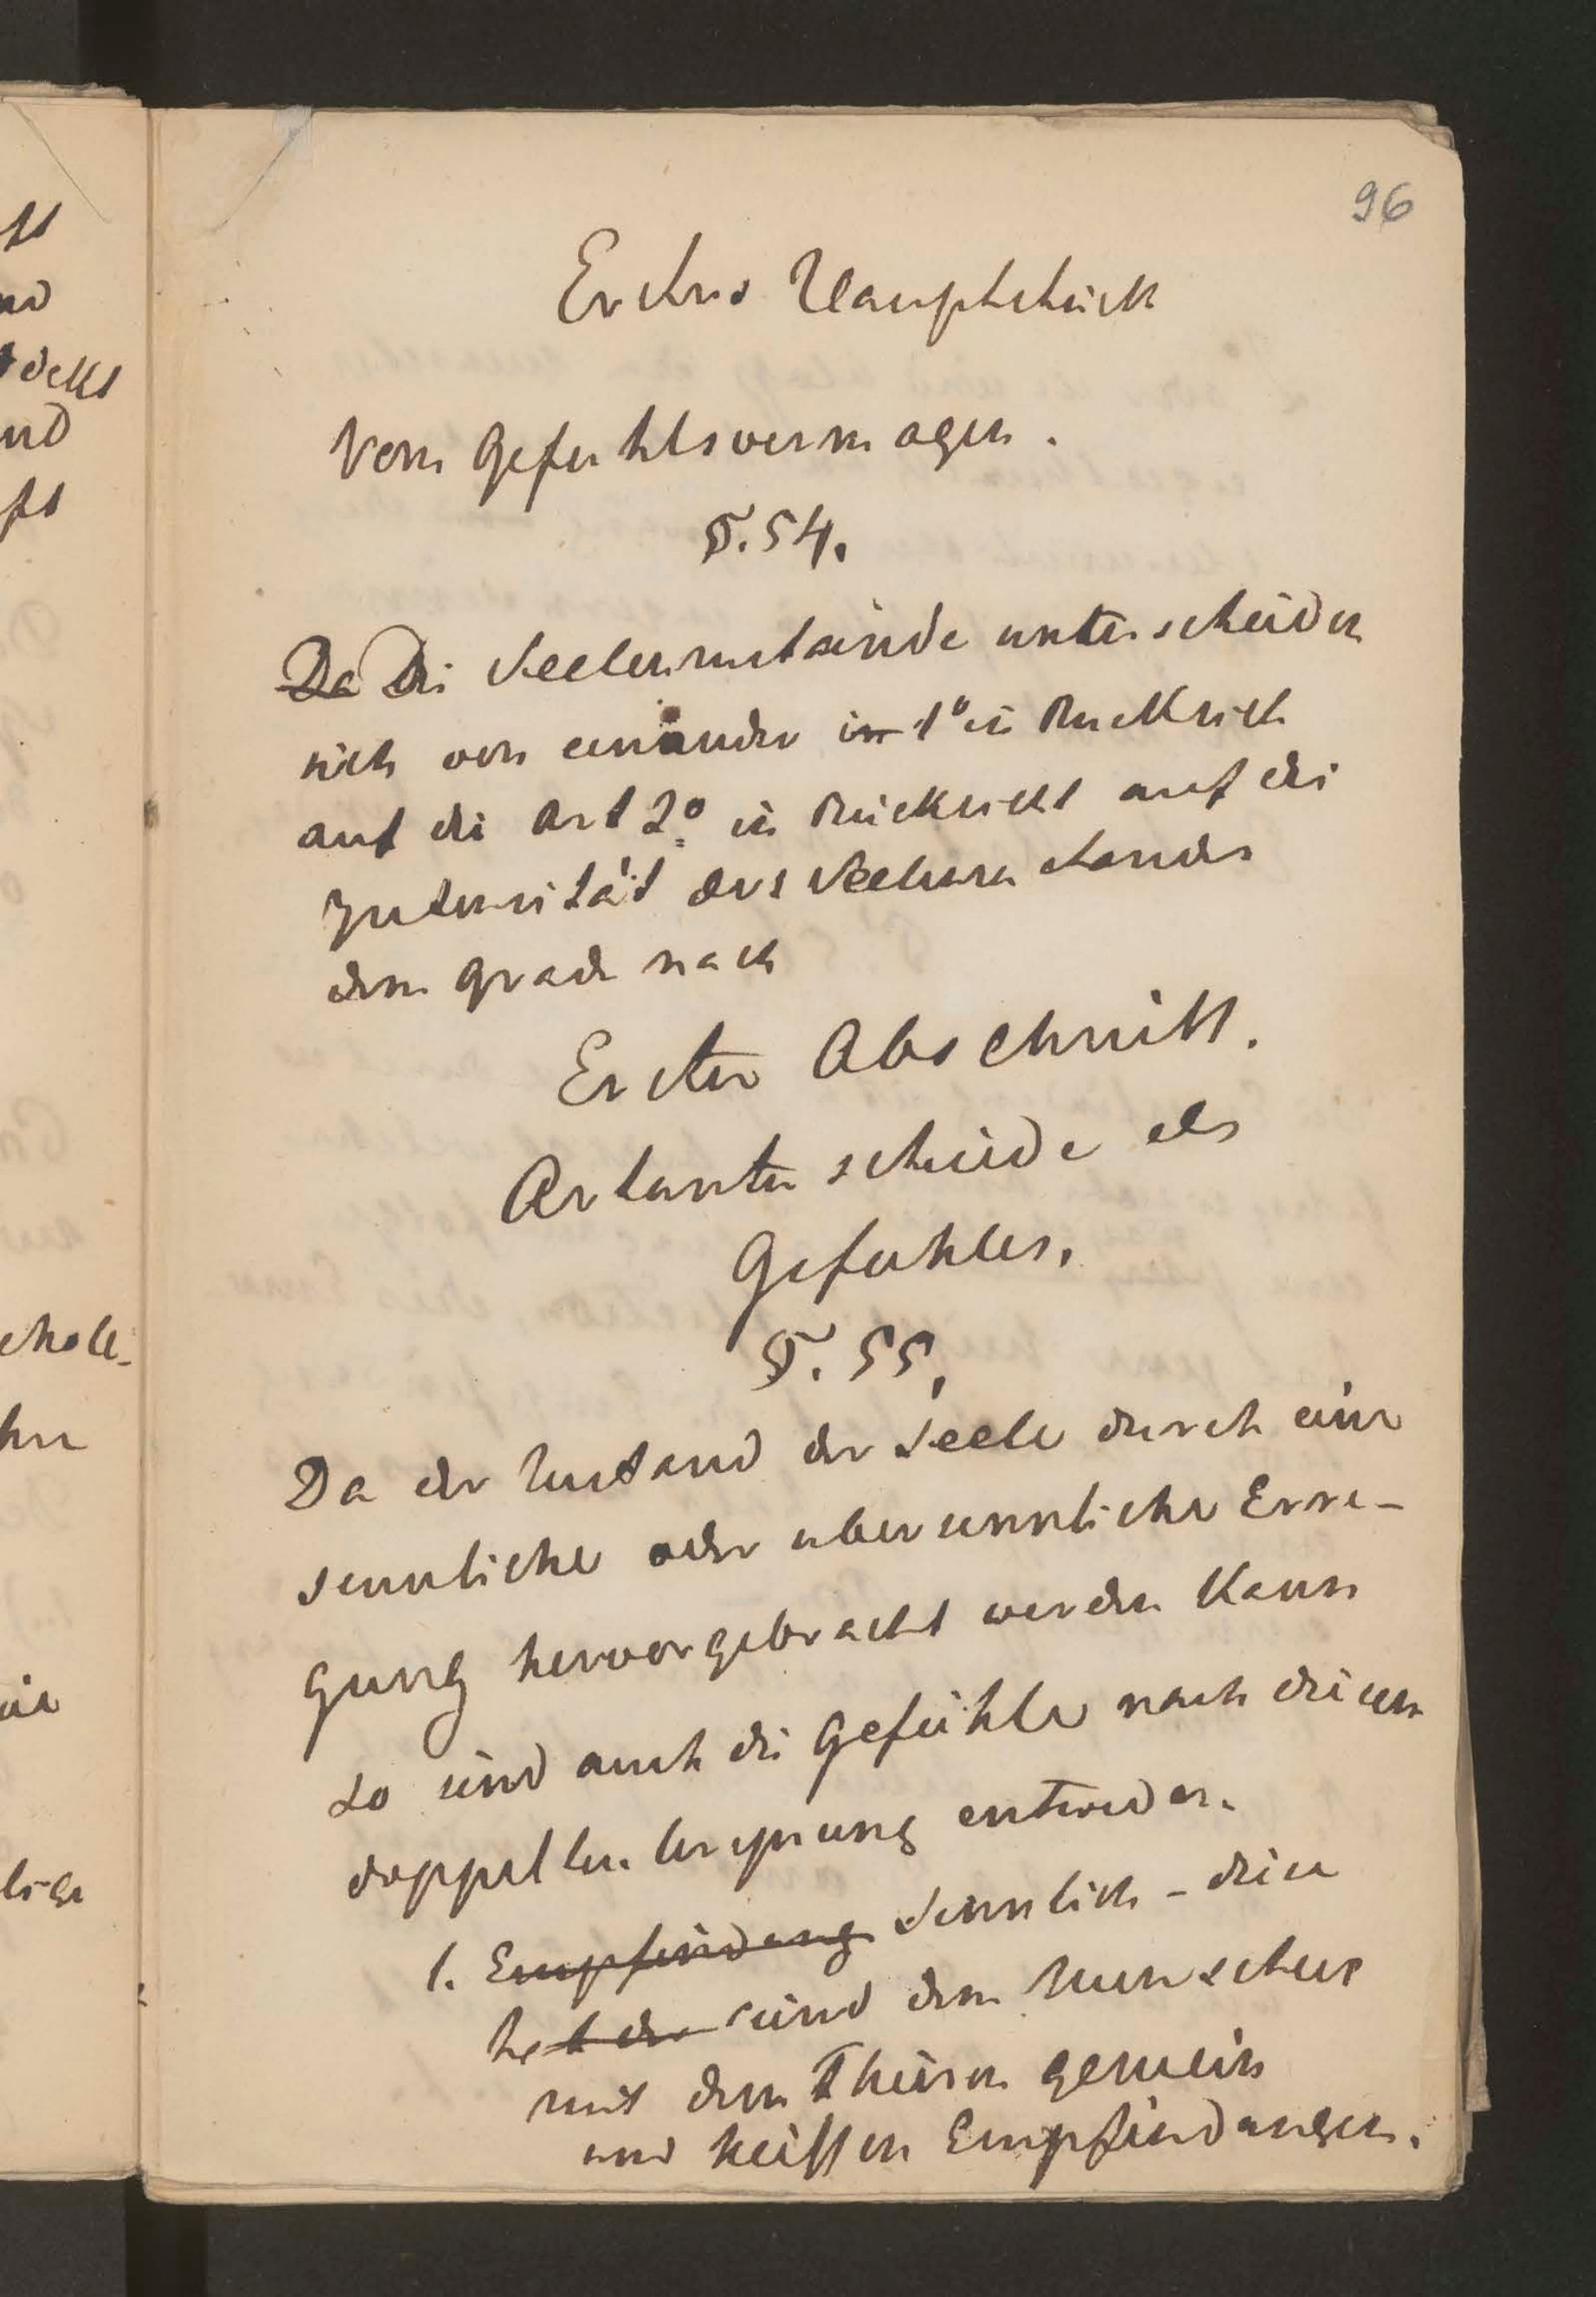 96
Erstes Hauptstück
Vom Gefuhlsvermogen.
§. 54.
Da Die Seelenzustände unterscheiden
sich von einander in 1° in Rucksich
auf die Art 2° in Rücksicht auf die
Intensität des Seelenzustandes
dem Grade nach
Erster Abschnitt.
Artunterschiede des
Gefuhles.
§. 55.
Da der Zustand der Seele durch eine
sinnliche oder ubersinnliche Erre-
gung hervorgebracht werden kann
so sind auch die Gefühle nach diesem
doppelten Ursprung entweder.
1. Empfindung sinnlich - diese
hat der sind dem Menschen
mit dem Thieren gemein
und heissen Empfindungen.